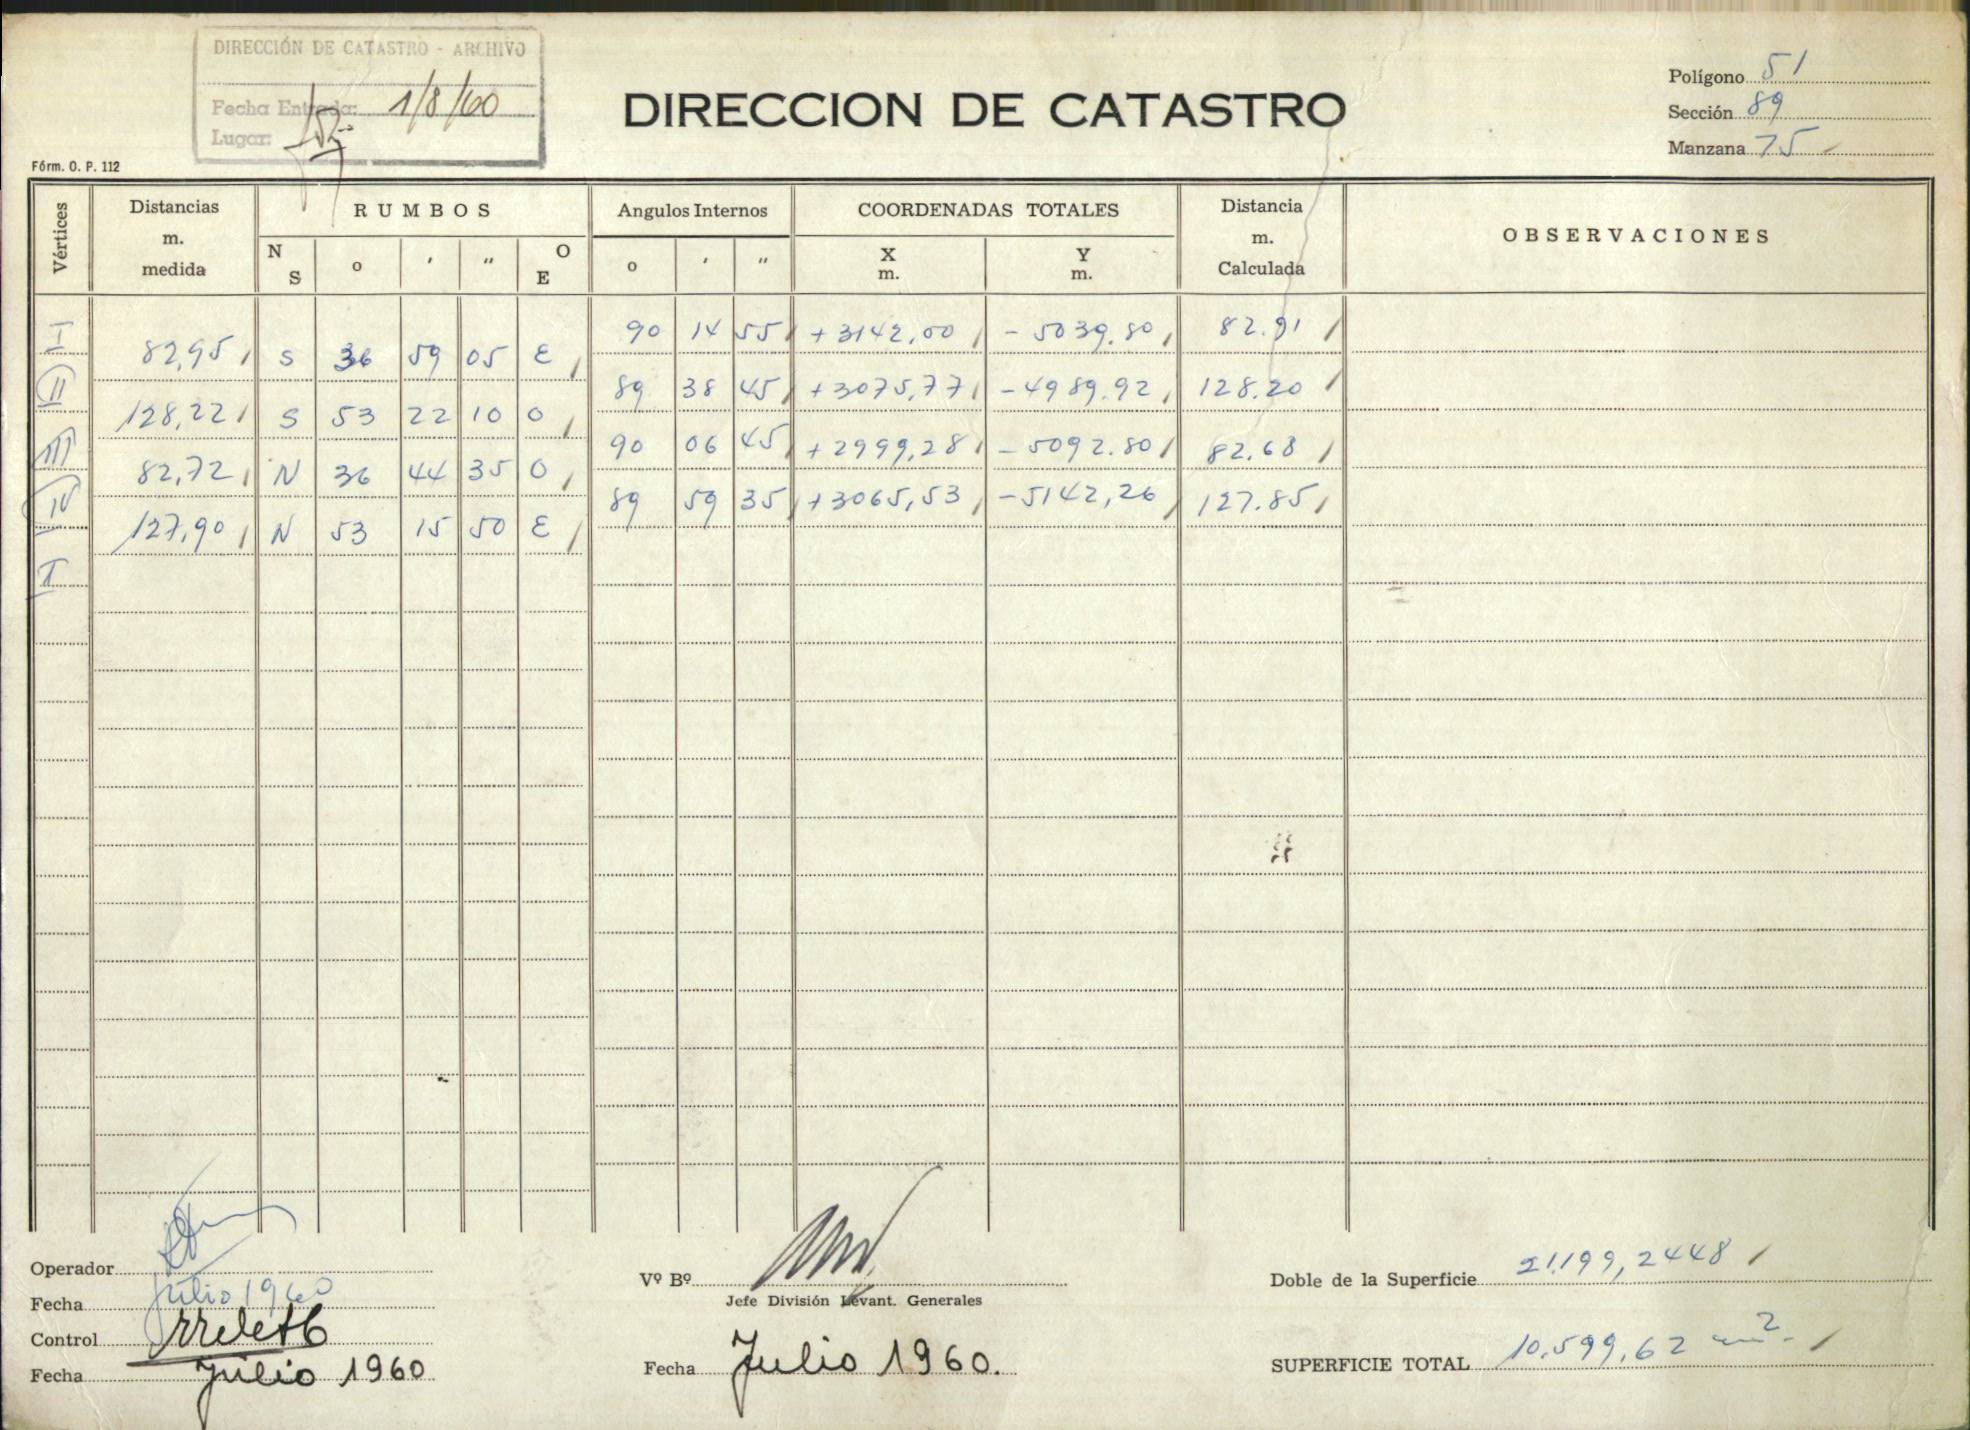 DIRECCIÓN DE CATASTRO - ARCHIVO
Fecha Entrada: 1/8/60
Lugar:
DIRECCION DE CATASTRO
Polígono 51
Sección 89
Manzana 75
Fórm. O. P. 112
Vértices Distancias m. medida RUMBOS Angulos Internos COORDENADAS TOTALES Distancia m. Calculada OBSERVACIONES
N S o ′ ″ O E o ′ ″ X m. Y m.
I 90 14 55 +3142,00 -5039.80 82.91
82,95 S 36 59 05 E
II 89 38 45 +3075,77 -4989.92 128.20
128,22 S 53 22 10 O
III 90 06 45 +2999,28 -5092.80 82.68
82,72 N 36 44 35 O
IV 89 59 35 +3065,53 -5142,26 127.85
127,90 N 53 15 50 E
I
Operador
Fecha Julio 1960
Control
Fecha Julio 1960
Vº Bº
Jefe División Levant. Generales
Fecha Julio 1960.
Doble de la Superficie 21.199,2448
SUPERFICIE TOTAL 10.599,62 m2.